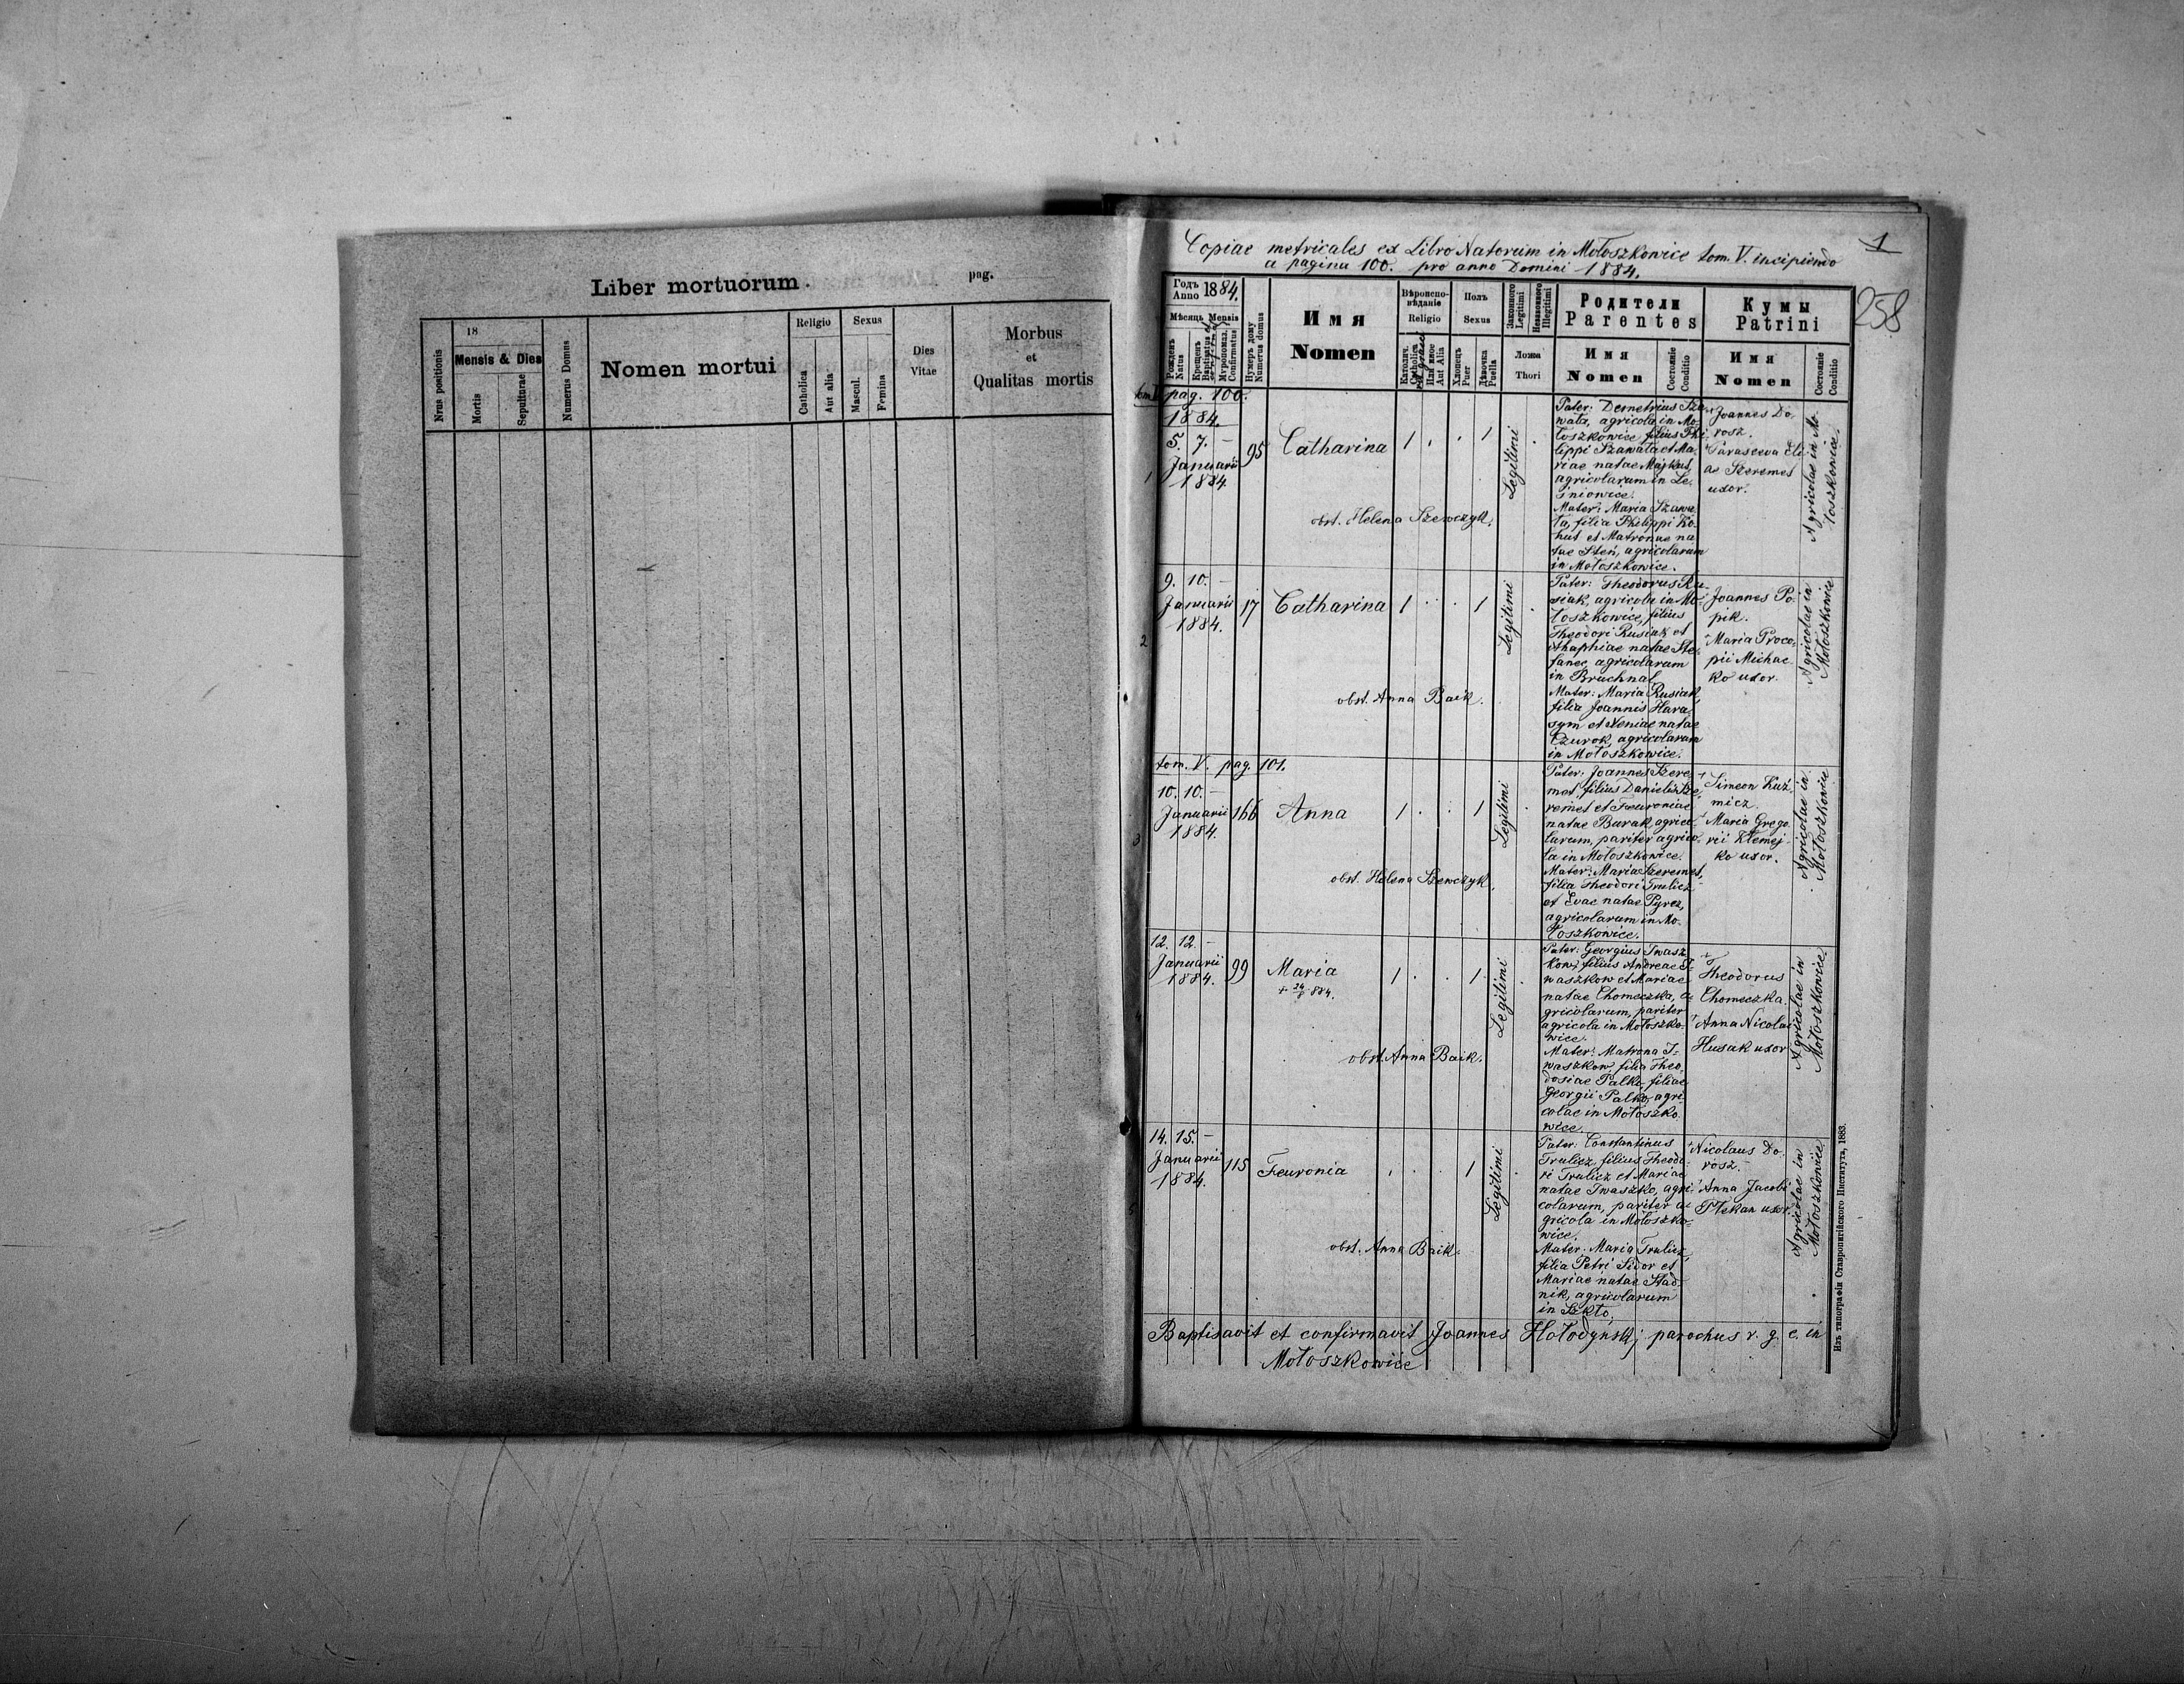 Liber mortuorum.
pag.
Nrus positionis
18
Mensis & Dies
Mortis
Sepulturae
Numerus Domus
Nomen mortui
Religio
Catholica
Aut alia
Sexus
Mascul.
Femina
Dies
Vitae
Morbus
et
Qualitas mortis
Copiae metricales ex Libro Natorum in Mołoszkowice tom. V. incipiendo
a pagina 100. pro anno Domini 1884.
1
258
Годъ
Anno 1884.
Мѣсяць Mensis
Рожденъ
Natus
Крещенъ
Baptisatus et
Мѵропомаз.
Confirmatus
Нумеръ дому
Numerus domus
Имя
Nomen
Вѣроиспо-
вѣданіе
Religio
Католич.
Catholica
Или иное
Aut Alia
Полъ
Sexus
Хлопець
Puer
Дѣвочка
Puella
Законного
Legitimi
Незаконного
Illegitimi
Ложа
Thori
Родители
Parentes
Имя
Nomen
Состояніе
Conditio
Кумы
Patrini
Имя
Nomen
Состояніе
Conditio
pag. 100.
1884.
5. 7. –
Januarii
1884.
1
95
Catharina
1 . . 1
Legitimi
obst. Helena Szewczyk.
Pater: Demetrius Sza-
wała, agricola in Mo-
łoszkowice, filius Phi-
lippi Szawała et Ma-
riae natae Majkut,
agricolarum in Le-
śniowice.
Mater: Maria Szawa-
ła, filia Philippi Ko-
hut et Matronae na-
tae Steń, agricolarum
in Mołoszkowice.
Joannes Do-
rosz.
Parasceva Eli-
ae Szeremet
uxor.
Agricolae in Mo-
łoszkowice.
2
9. 10. –
Januarii
1884.
17
Catharina
1 . . 1
Legitimi
obst. Anna Baik.
Pater: Theodorus Ru-
siak, agricola in Mo-
łoszkowice, filius
Theodori Rusiak et
Ahaphiae natae Ste-
fanec, agricolarum
in Bruchnal.
Mater: Maria Rusiak,
filia Joannis Hara-
sym et Xeniae natae
Czurok, agricolarum
in Mołoszkowice.
Joannes Po-
pik.
Maria Proco-
pii Michac-
ko uxor.
Agricolae in
Mołoszkowice
tom. V. pag. 101.
3
10. 10. –
Januarii
1884.
166
Anna
1 . . 1
Legitimi
obst. Helena Szewczyk.
Pater: Joannes Szere-
met, filius Danielis Sze-
remet et Feuroniae
natae Burak, agrico-
larum, pariter agrico-
la in Mołoszkowice.
Mater: Maria Szeremet,
filia Theodori Trulicz
et Evae natae Pyrcz,
agricolarum in Mo-
łoszkowice.
Simeon Kuź-
micz
Maria Grego-
rii Klemej-
ko uxor.
Agricolae in
Mołoszkowice
4
12. 12. –
Januarii
1884.
99
Maria
1 . . 1
Legitimi
obst. Anna Baik.
Pater: Georgius Iwasz-
kow, filius Andreae I-
waszkow et Mariae
natae Chomeczka, a-
gricolarum, pariter
agricola in Mołoszko-
wice.
Mater: Matrona I-
waszkow, filia Theo-
dosiae Palko, filiae
Georgii Palko, agri-
colae in Mołoszko-
wice.
Theodorus
Chomeczka.
Anna Nicolai
Husak uxor
Agricolae in
Mołoszkowice
14. 15. –
Januarii
1884.
115
Feuronia
. . . 1
Legitimi
obst. Anna Baik.
Pater: Constantinus
Trulicz, filius Theodo-
ri Trulicz et Mariae
natae Iwaszko, agri-
colarum, pariter a-
gricola in Mołoszko-
wice.
Mater: Maria Trulicz,
filia Petri Sidor et
Mariae natae Stad-
nik, agricolarum
in Szkło.
Nicolaus Do-
rosz.
Anna Jacobi
Plekan uxor.
Agricolae in
Mołoszkowice
Baptisavit et confirmavit Joannes Hołodynskj parochus r. g. c. in
Mołoszkowice
Изъ типографіи Ставропигійского Института, 1883.